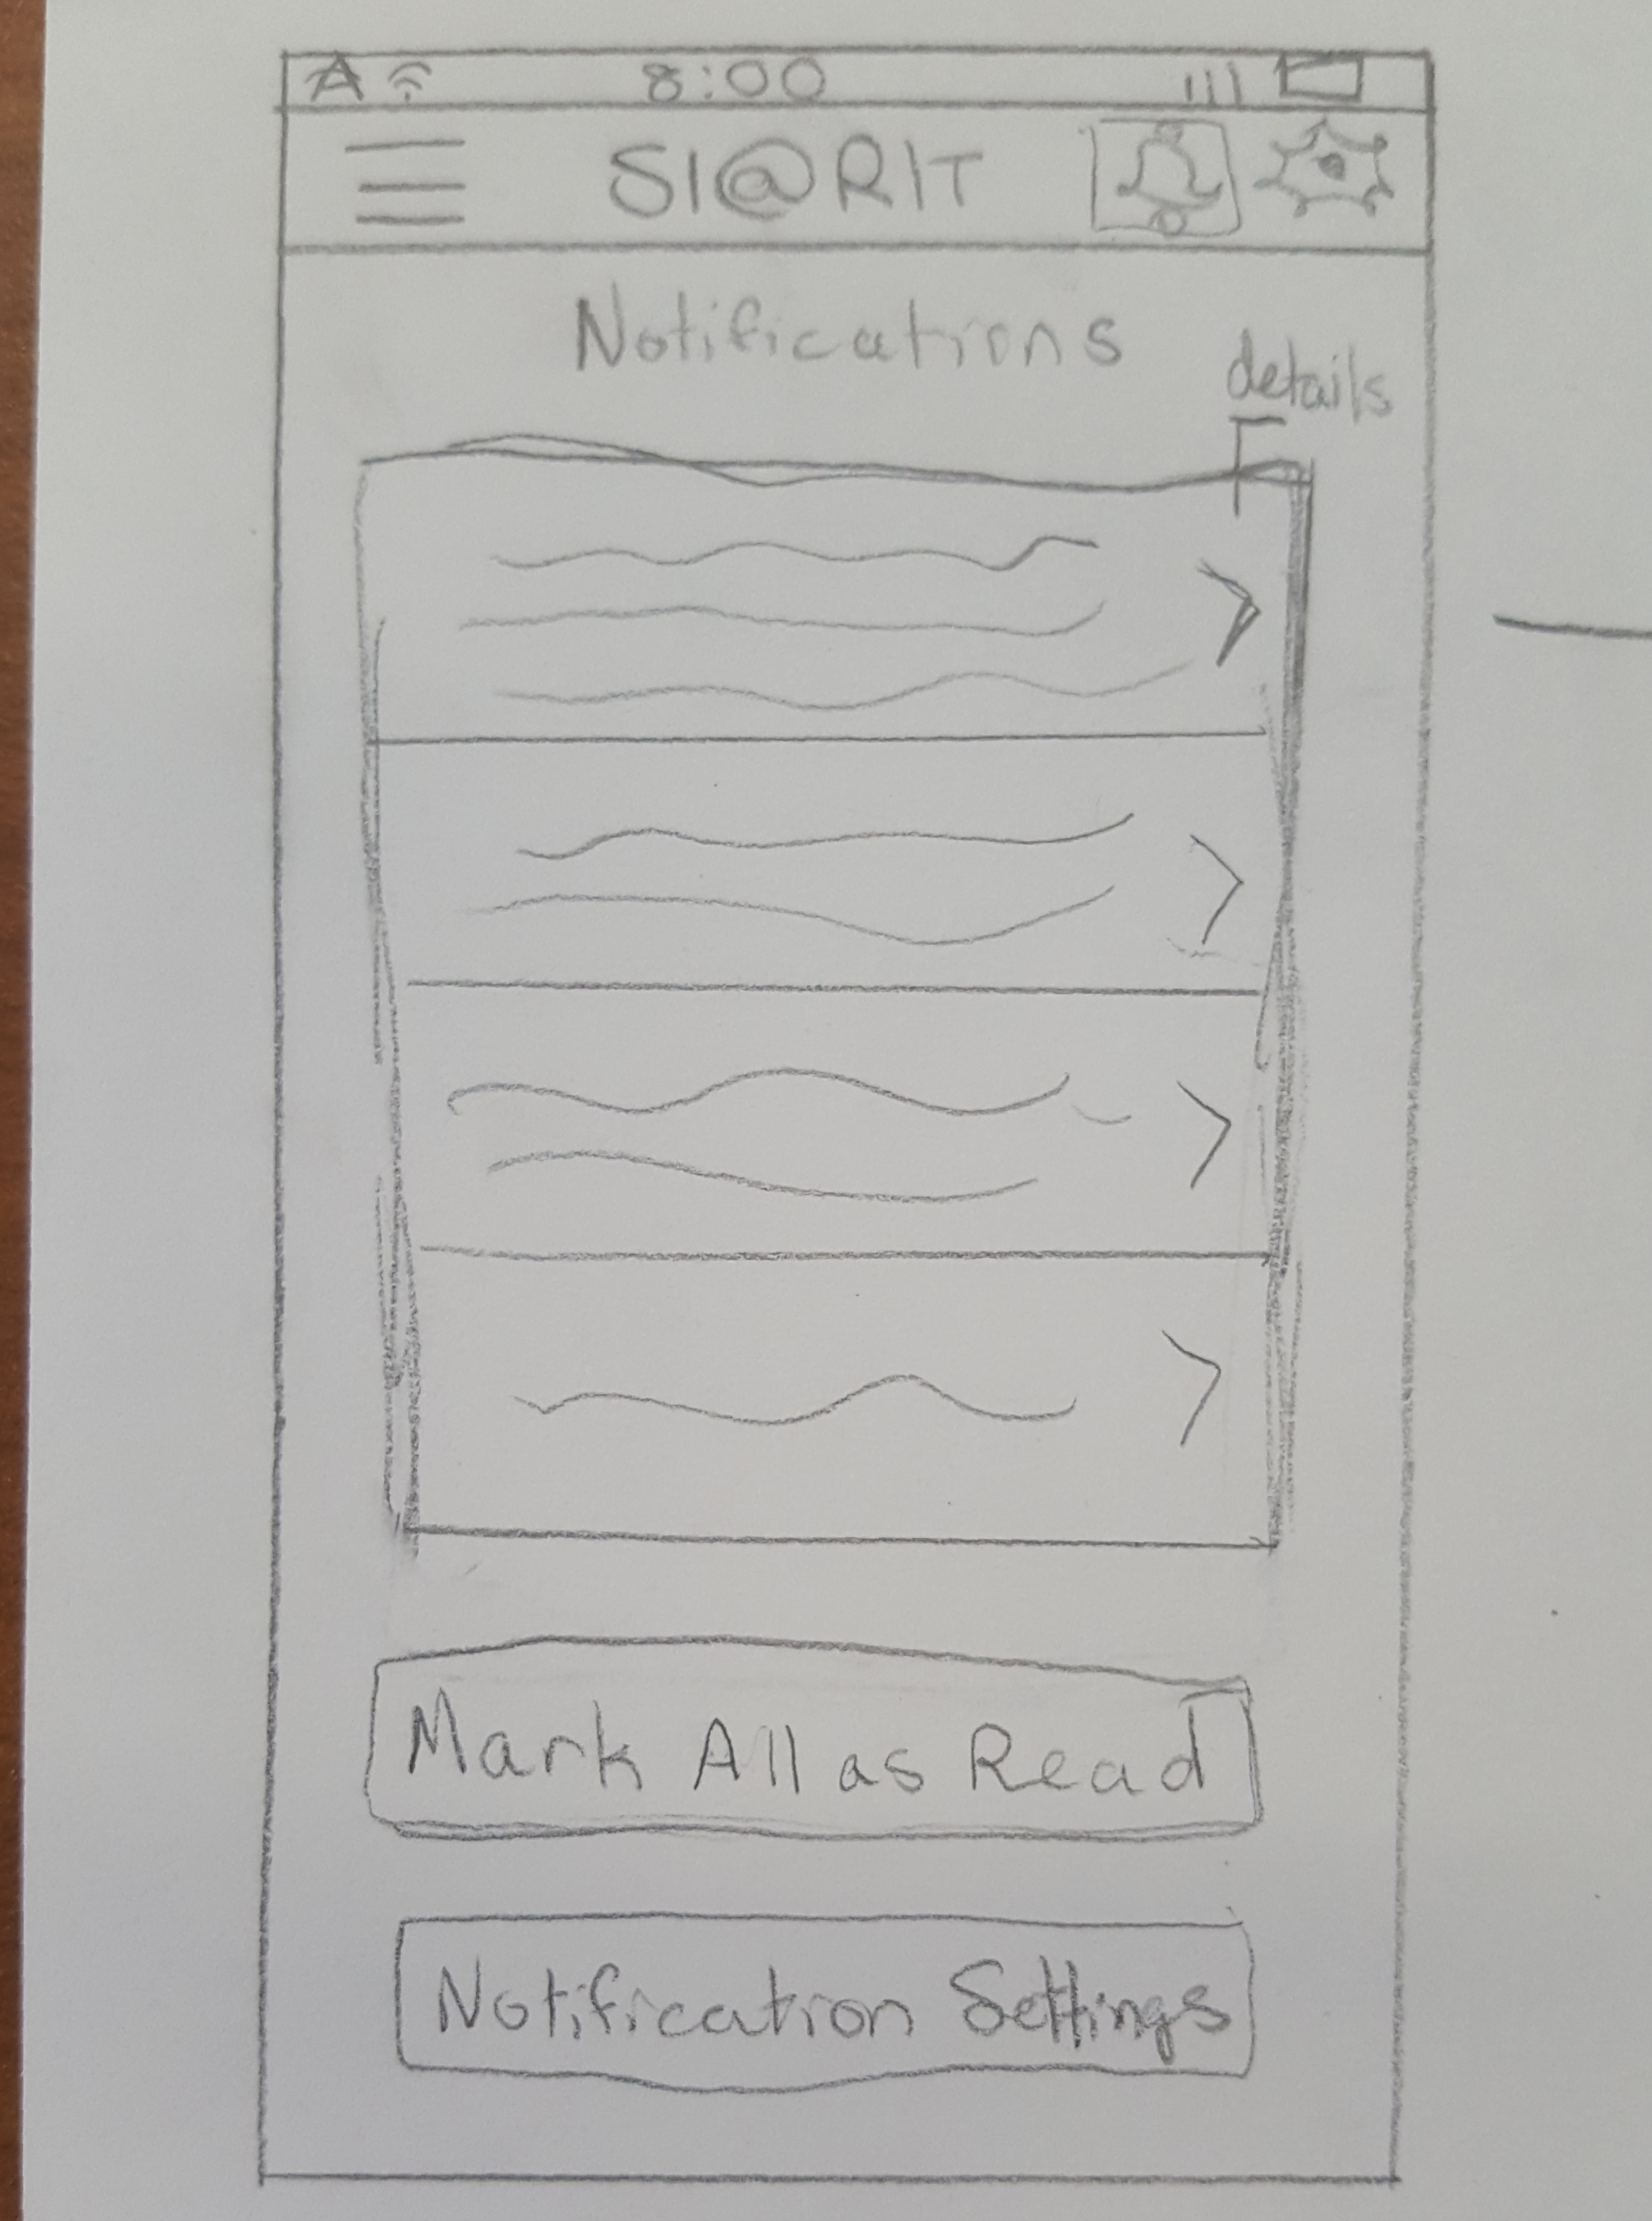 A 8:00
SI@RIT
Notifications
details
Mark All as Read
Notification Settings